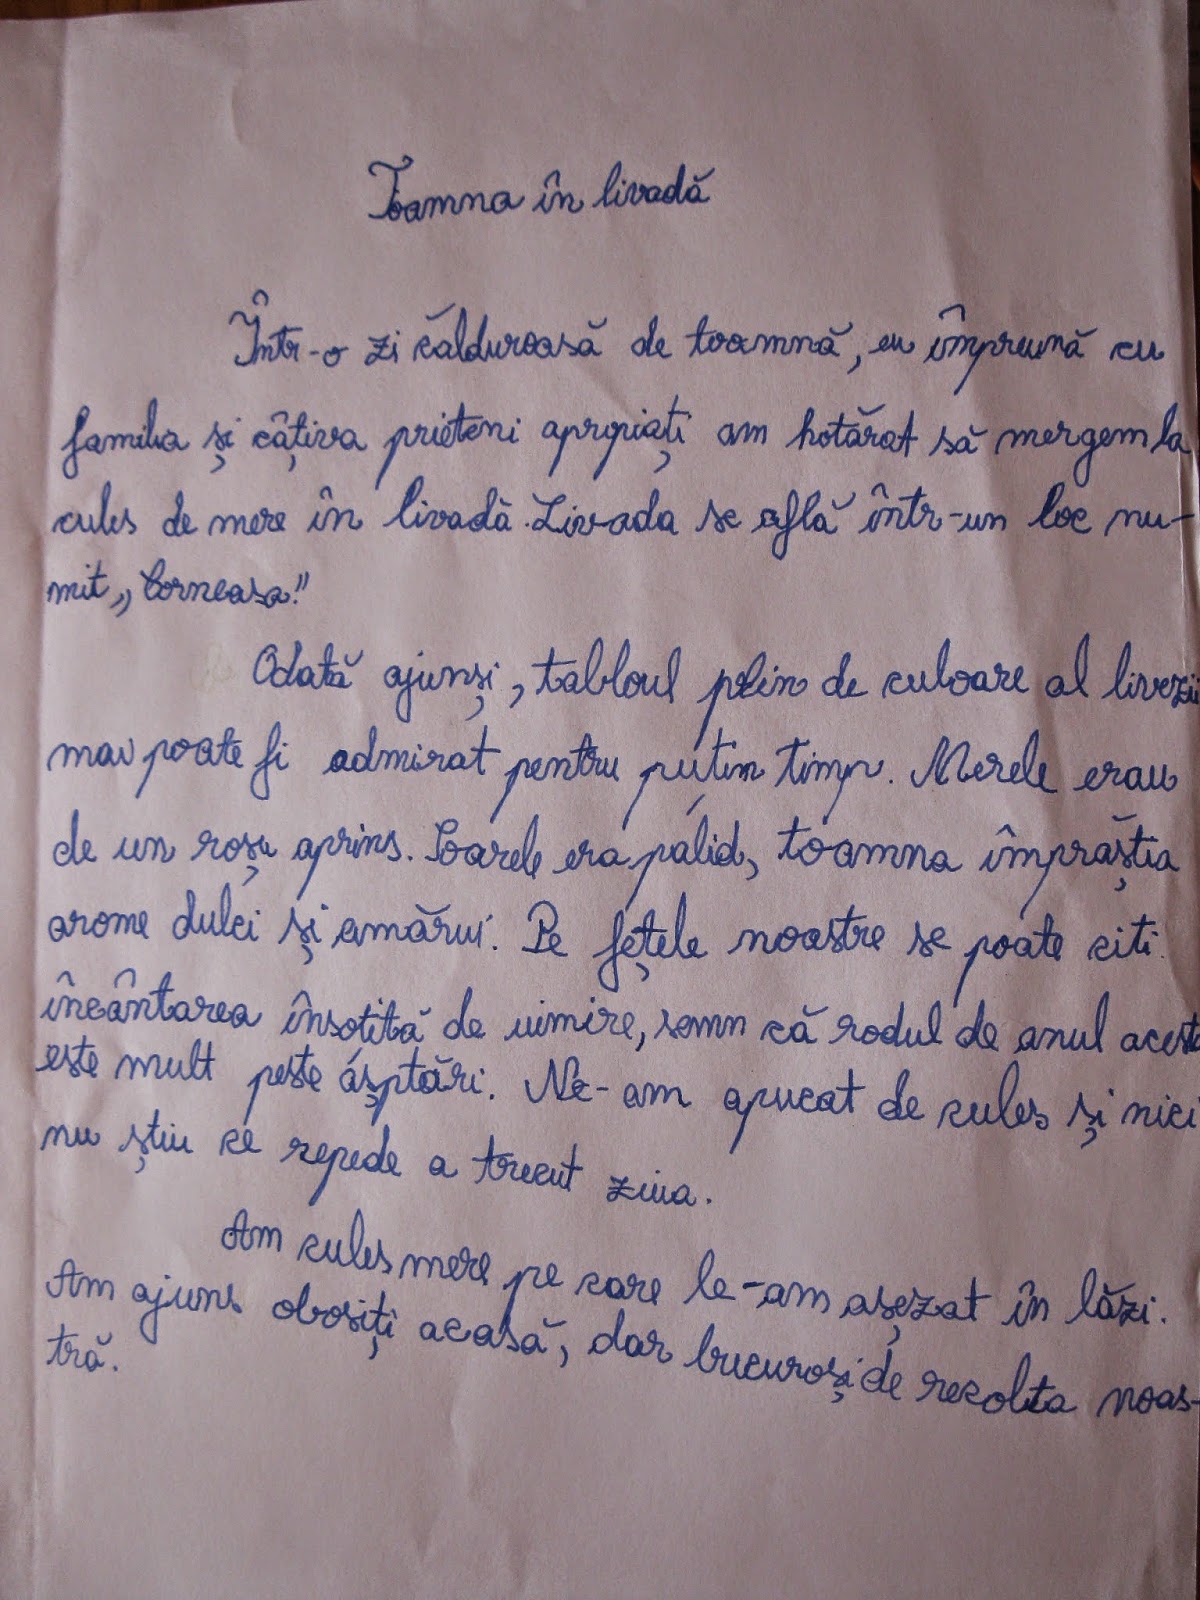 Toamna în livadă
Într-o zi călduroasă de toamnă, eu împreună cu
familia și câțiva prieteni apropiați am hotărat să mergem la
cules de mere în livadă. Livada se află într-un loc nu-
mit „Corneasa."
Odată ajunși, tabloul plin de culoare al livezii
mai poate fi admirat pentru puțin timp. Merele erau
de un roșu aprins. Soarele era palid, toamna împrăștia
arome dulci și amărui. Pe fețele noastre se poate citi
încântarea însoțită de uimire, semn că rodul de anul acesta
este mult peste așptări. Ne-am apucat de cules și nici
nu știu ce repede a trecut ziua.
Am cules mere pe care le-am așezat în lăzi.
Am ajuns obosiți acasă, dar bucuroși de recolta noas-
tră.